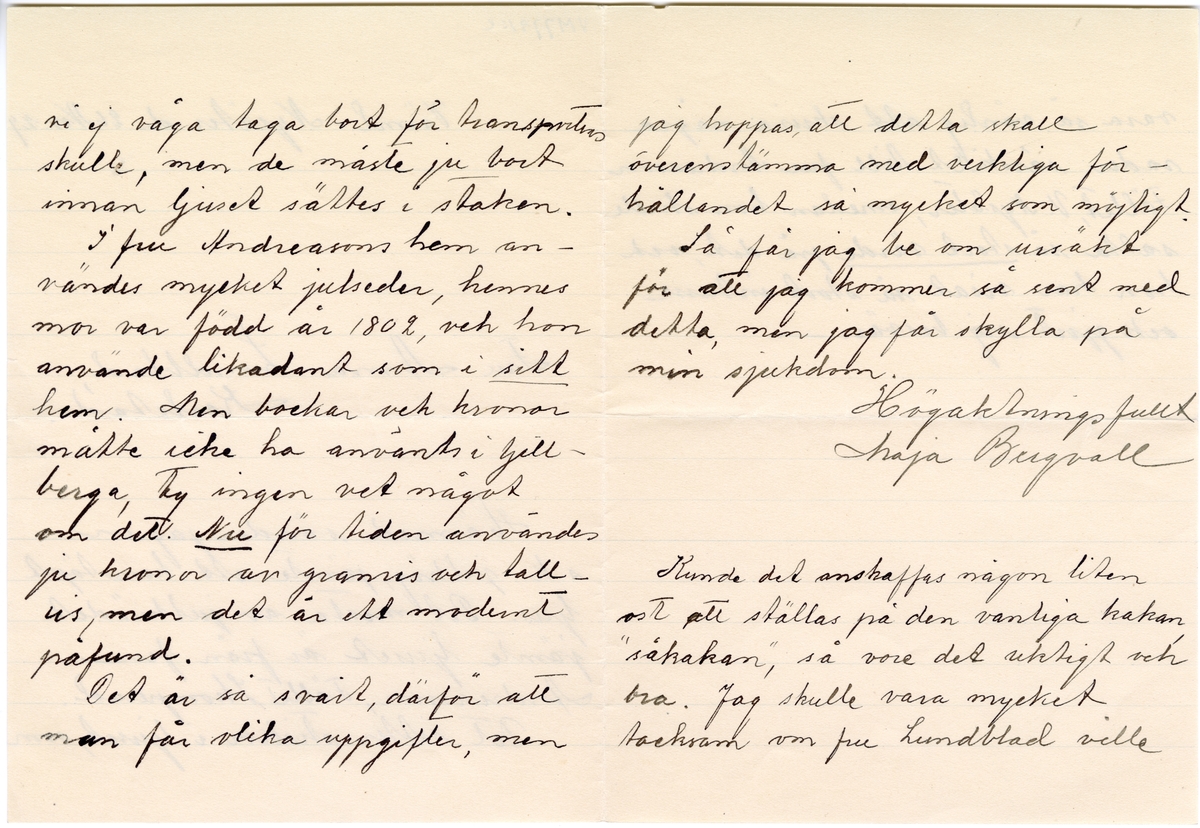 vi ej våga taga bort för transportens
skull, men de måste ju bort
innan ljuset sättes i staken.
I fru Andreasons hem an-
vändes mycket julseder, hennes
mor var född år 1802, och hon
använde likadant som i sitt
hem. Men bockar och kronor
måtte icke ha använts i Fjell-
berga, ty ingen vet något
om det. Nu för tiden användes
ju kronor av granris och tall-
ris, men det är ett modernt
påfund.
Det är så svårt, därför att
man får olika uppgifter, men
jag hoppas, att detta skall
överenstämma med verkliga för-
hållandet så mycket som möjligt.
Så får jag be om ursäkt
för att jag kommer så sent med
detta, men jag får skylla på
min sjukdom.
Högaktningsfullt
Maja Bergvall
Kunde det anskaffas någon liten
ost att ställas på den vanliga kakan,
"såkakan", så vore det riktigt och
bra. Jag skulle vara mycket
tacksam om fru Lundblad ville